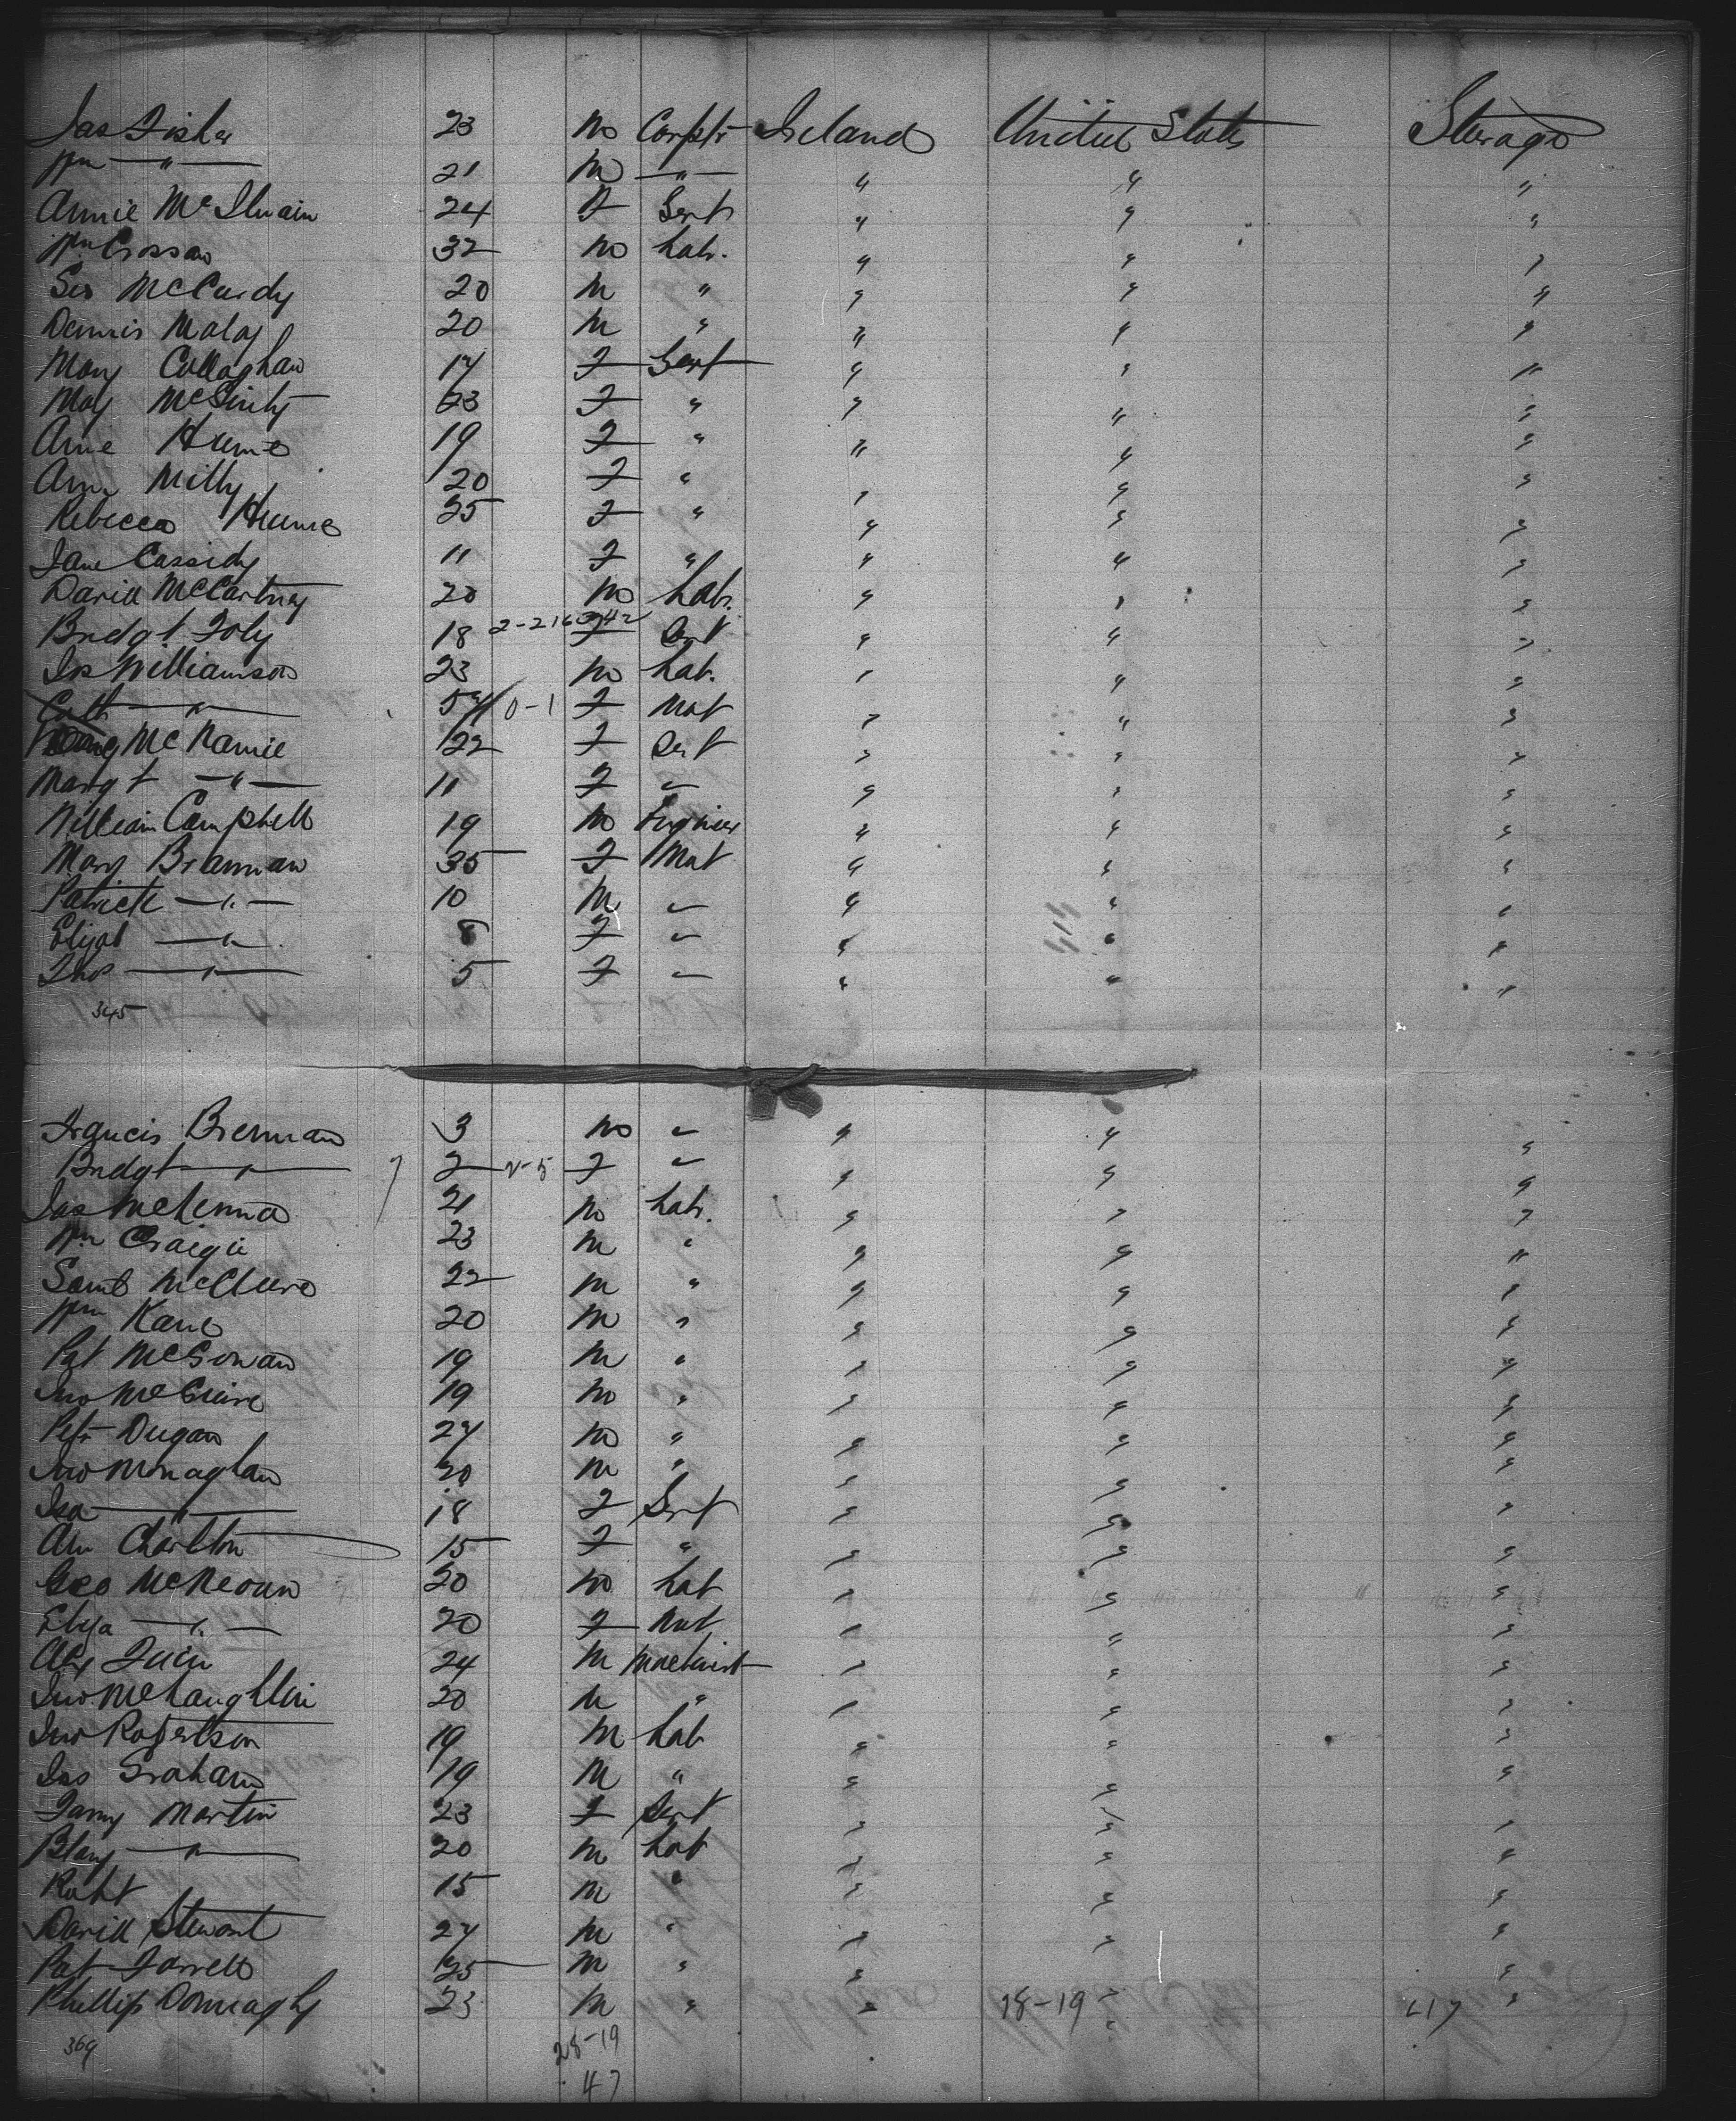 Jas Fisher 23 M Carptr Ireland United States Steerage
Wm " 21 M " " " "
Annie McIlwain 24 F Servt " " "
Wm Crossan 32 M Labr. " " "
Geo McCurdy 20 M " " " "
Dennis Malay 20 M " " " "
Mary Callaghan 17 F Servt " " "
May McGinty 23 F " " " "
Anne Hume 19 F " " " "
Ann Milly 20 F " " " "
Rebecca Hume 25 F " " " "
Jane Cassidy 11 F " " " "
David McCartney 20 M Labr. " " "
Bridgt Foly 18 F Servt " " "
Jas Williamson 23 M Lab. " " "
Cath " F Mat " " "
McNamie 22 F Servt " " "
Margt " 11 F " " " "
William Campbell 19 M Engineer " " "
Mary Brennan 35 F Mat " " "
Patrick " 10 M " " " "
Elizabt " 8 F " " " "
Thos " 5 F " " " "
345
Francis Brennan 3 M " " " "
Bridgt " 2 F " " " "
Jas McKenna 21 M Labr. " " "
Wm Craigie 23 M " " " "
Saml McClure 22 M " " " "
Wm Kane 20 M " " " "
Pat McGowan 19 M " " " "
Jno McGuire 19 M " " " "
Petr Dugan 24 M " " " "
Jno Monaghan 20 M " " " "
Isa " 18 F Servt " " "
Ann Charlton 15 F " " " "
Geo McKeown 20 M Lab " " "
Eliza " 20 F Mat " " "
Alex Quin 24 M Machinist " " "
Jno McLaughlin 20 M " " " "
Jno Robertson 19 M Lab " " "
Jas Graham 19 M " " " "
Fanny Martin 23 F Servt " " "
" 20 M Lab " " "
Robt 15 M " " " "
David Stewart 24 M " " " "
Pat Farrell 25 M " " " "
Phillip Donnaghy 23 M " " 28-19 " 47 "
369 28-19
47